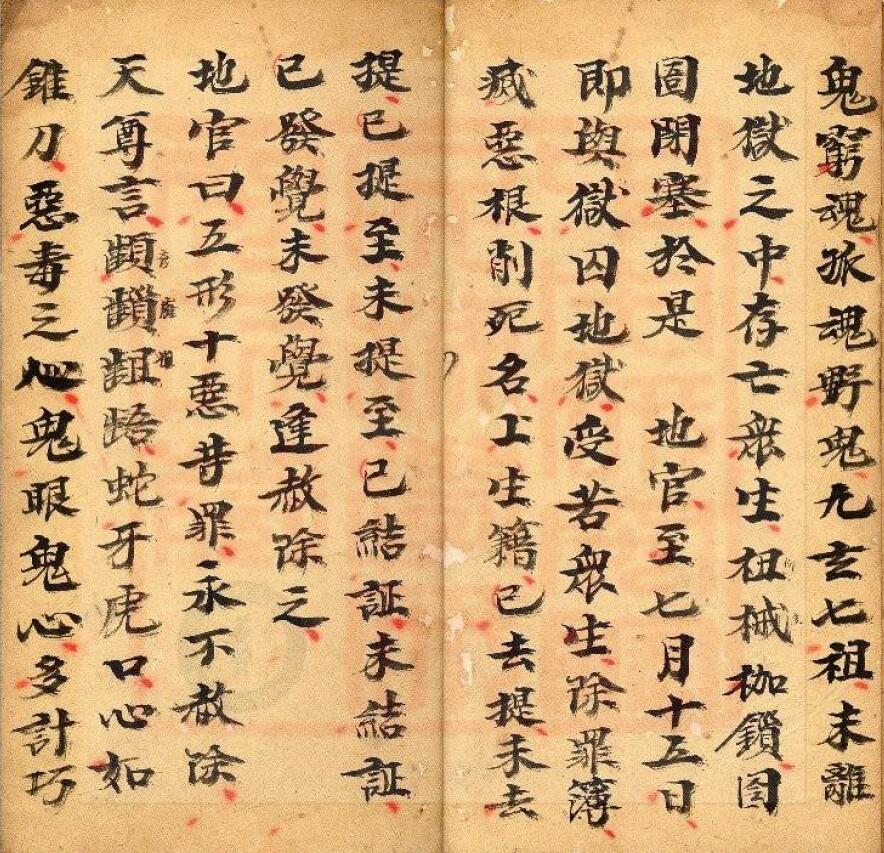 鬼窮魂孤魂野鬼九玄七祖未離
地獄之中存亡衆生杻械枷鎖囹
圄閉塞於是　地官至七月十五日
即與獄囚地獄受苦衆生除罪簿
滅惡根削死名上生籍已去提未去
提已提至未提至已結証未結証
已發覺未發覺逢赦除之
地官曰五形十惡昔罪永不赦除
天尊言齟齬蛇牙虎口心如
錐刀惡毒之心鬼眼鬼心多計巧